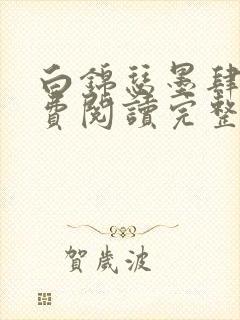 白錦瑟墨肆
費閱讀完整
賀歲波